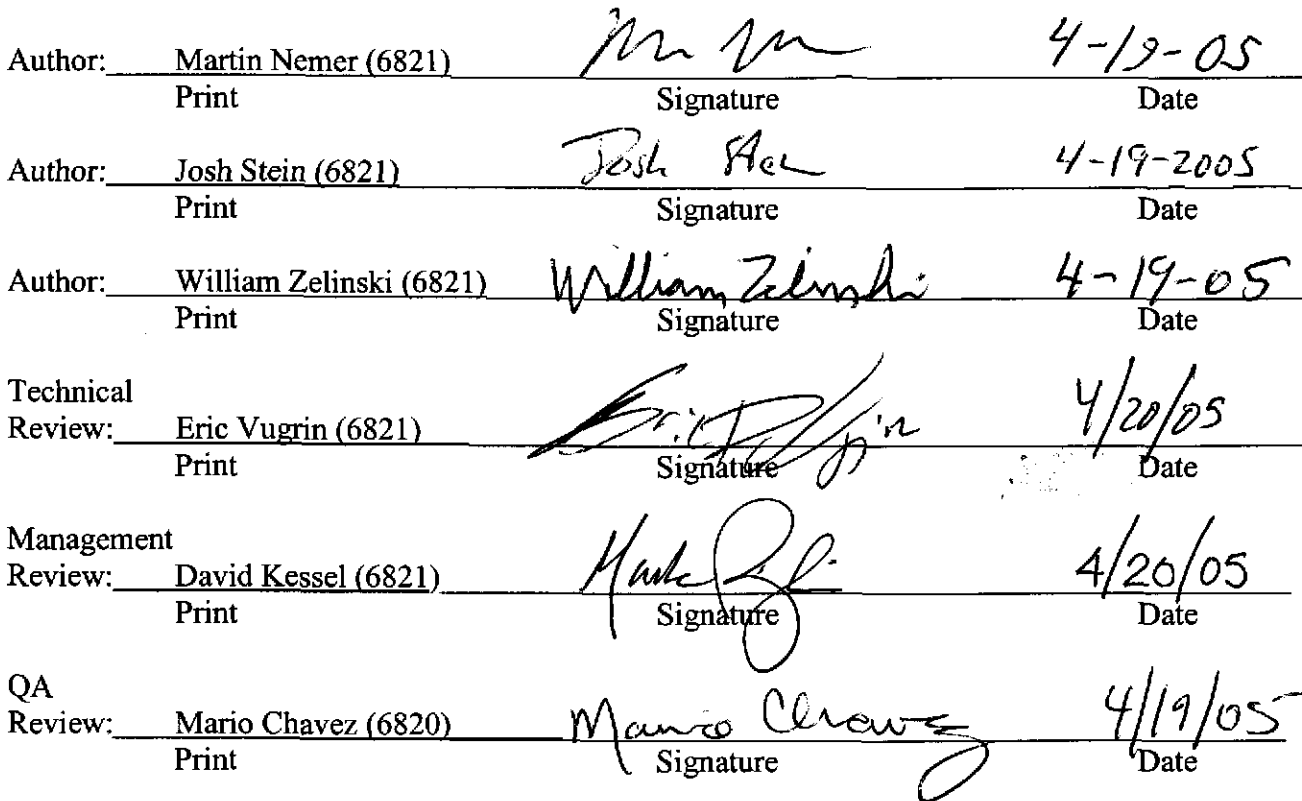 Author: Martin Nemer (6821) 4-19-05
Print Signature Date
Author: Josh Stein (6821) Josh Stein 4-19-2005
Print Signature Date
Author: William Zelinski (6821) William Zelinski 4-19-05
Print Signature Date
Technical
Review: Eric Vugrin (6821) Eric Vugrin 4/20/05
Print Signature Date
Management
Review: David Kessel (6821) Mark 4/20/05
Print Signature Date
QA
Review: Mario Chavez (6820) Mario Chavez 4/19/05
Print Signature Date